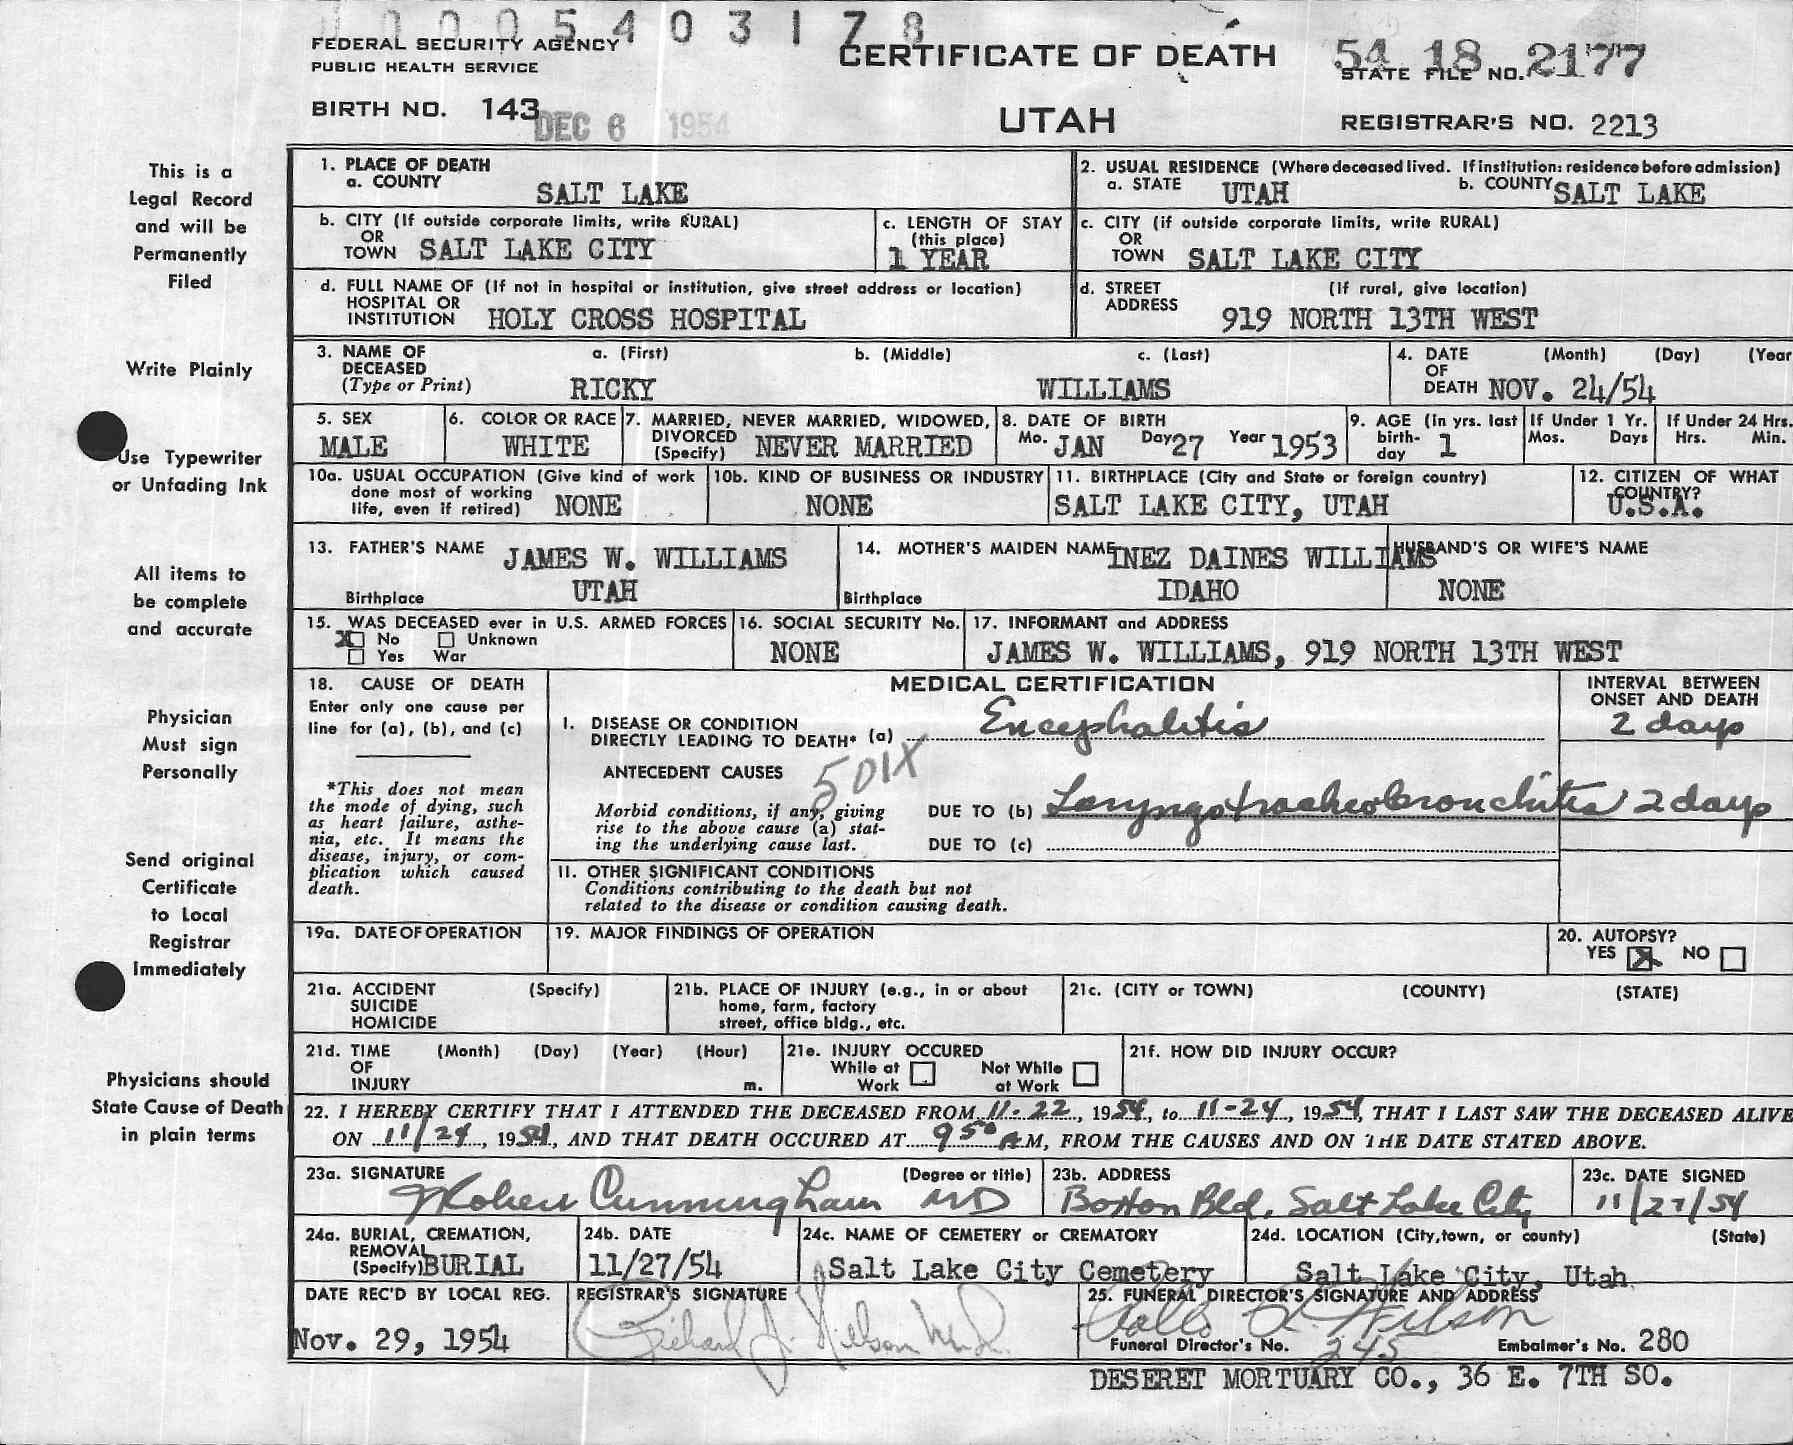 0005403178
FEDERAL SECURITY AGENCY
PUBLIC HEALTH SERVICE
CERTIFICATE OF DEATH
54 18 2177
STATE FILE NO.
BIRTH NO. 143
DEC 6 1954
UTAH
REGISTRAR'S NO. 2213
This is a
Legal Record
and will be
Permanently
Filed
Write Plainly
Use Typewriter
or Unfading Ink
All items to
be complete
and accurate
Physician
Must sign
Personally
Send original
Certificate
to Local
Registrar
Immediately
Physicians should
State Cause of Death
in plain terms
1. PLACE OF DEATH
a. COUNTY SALT LAKE
2. USUAL RESIDENCE (Where deceased lived. If institution: residence before admission)
a. STATE UTAH b. COUNTY SALT LAKE
b. CITY (If outside corporate limits, write RURAL)
OR
TOWN SALT LAKE CITY
c. LENGTH OF STAY
(this place)
1 YEAR
c. CITY (if outside corporate limits, write RURAL)
OR
TOWN SALT LAKE CITY
d. FULL NAME OF (If not in hospital or institution, give street address or location)
HOSPITAL OR
INSTITUTION HOLY CROSS HOSPITAL
d. STREET (If rural, give location)
ADDRESS
919 NORTH 13TH WEST
3. NAME OF a. (First) b. (Middle) c. (Last)
DECEASED
(Type or Print) RICKY WILLIAMS
4. DATE (Month) (Day) (Year
OF
DEATH NOV. 24/54
5. SEX
MALE
6. COLOR OR RACE
WHITE
7. MARRIED, NEVER MARRIED, WIDOWED,
DIVORCED
(Specify) NEVER MARRIED
8. DATE OF BIRTH
Mo. JAN Day 27 Year 1953
9. AGE (In yrs. last
birth-
day 1
If Under 1 Yr.
Mos. Days
If Under 24 Hrs.
Hrs. Min.
10a. USUAL OCCUPATION (Give kind of work
done most of working
life, even if retired) NONE
10b. KIND OF BUSINESS OR INDUSTRY
NONE
11. BIRTHPLACE (City and State or foreign country)
SALT LAKE CITY, UTAH
12. CITIZEN OF WHAT
COUNTRY?
U.S.A.
13. FATHER'S NAME JAMES W. WILLIAMS
Birthplace UTAH
14. MOTHER'S MAIDEN NAME INEZ DAINES WILLIAMS
Birthplace IDAHO
HUSBAND'S OR WIFE'S NAME
NONE
15. WAS DECEASED ever in U.S. ARMED FORCES
X No Unknown
Yes War
16. SOCIAL SECURITY No.
NONE
17. INFORMANT and ADDRESS
JAMES W. WILLIAMS, 919 NORTH 13TH WEST
18. CAUSE OF DEATH
Enter only one cause per
line for (a), (b), and (c)
*This does not mean
the mode of dying, such
as heart failure, asthe-
nia, etc. It means the
disease, injury, or com-
plication which caused
death.
MEDICAL CERTIFICATION
INTERVAL BETWEEN
ONSET AND DEATH
I. DISEASE OR CONDITION
DIRECTLY LEADING TO DEATH* (a) Encephalitis 2 days
ANTECEDENT CAUSES 501X
Morbid conditions, if any, giving
rise to the above cause (a) stat-
ing the underlying cause last.
DUE TO (b) Laryngotracheobronchitis 2 days
DUE TO (c)
II. OTHER SIGNIFICANT CONDITIONS
Conditions contributing to the death but not
related to the disease or condition causing death.
19a. DATE OF OPERATION
19. MAJOR FINDINGS OF OPERATION
20. AUTOPSY?
YES X NO
21a. ACCIDENT (Specify)
SUICIDE
HOMICIDE
21b. PLACE OF INJURY (e.g., in or about
home, farm, factory
street, office bldg., etc.
21c. (CITY or TOWN) (COUNTY) (STATE)
21d. TIME (Month) (Day) (Year) (Hour)
OF
INJURY m.
21e. INJURY OCCURED
While at Not While
Work at Work
21f. HOW DID INJURY OCCUR?
22. I HEREBY CERTIFY THAT I ATTENDED THE DECEASED FROM 11-22, 1954, to 11-24, 1954, THAT I LAST SAW THE DECEASED ALIVE
ON 11/24, 1954, AND THAT DEATH OCCURED AT 9 50 A M, FROM THE CAUSES AND ON THE DATE STATED ABOVE.
23a. SIGNATURE (Degree or title)
Cunningham MD
23b. ADDRESS
Boston Bld, Salt Lake City
23c. DATE SIGNED
11/27/54
24a. BURIAL, CREMATION,
REMOVAL
(Specify) BURIAL
24b. DATE
11/27/54
24c. NAME OF CEMETERY or CREMATORY
Salt Lake City Cemetery
24d. LOCATION (City, town, or county) (State)
Salt Lake City, Utah
DATE REC'D BY LOCAL REG.
Nov. 29, 1954
REGISTRAR'S SIGNATURE
Richard J. Nelson
25. FUNERAL DIRECTOR'S SIGNATURE AND ADDRESS
Funeral Director's No. 245 Embalmer's No. 280
DESERET MORTUARY CO., 36 E. 7TH SO.